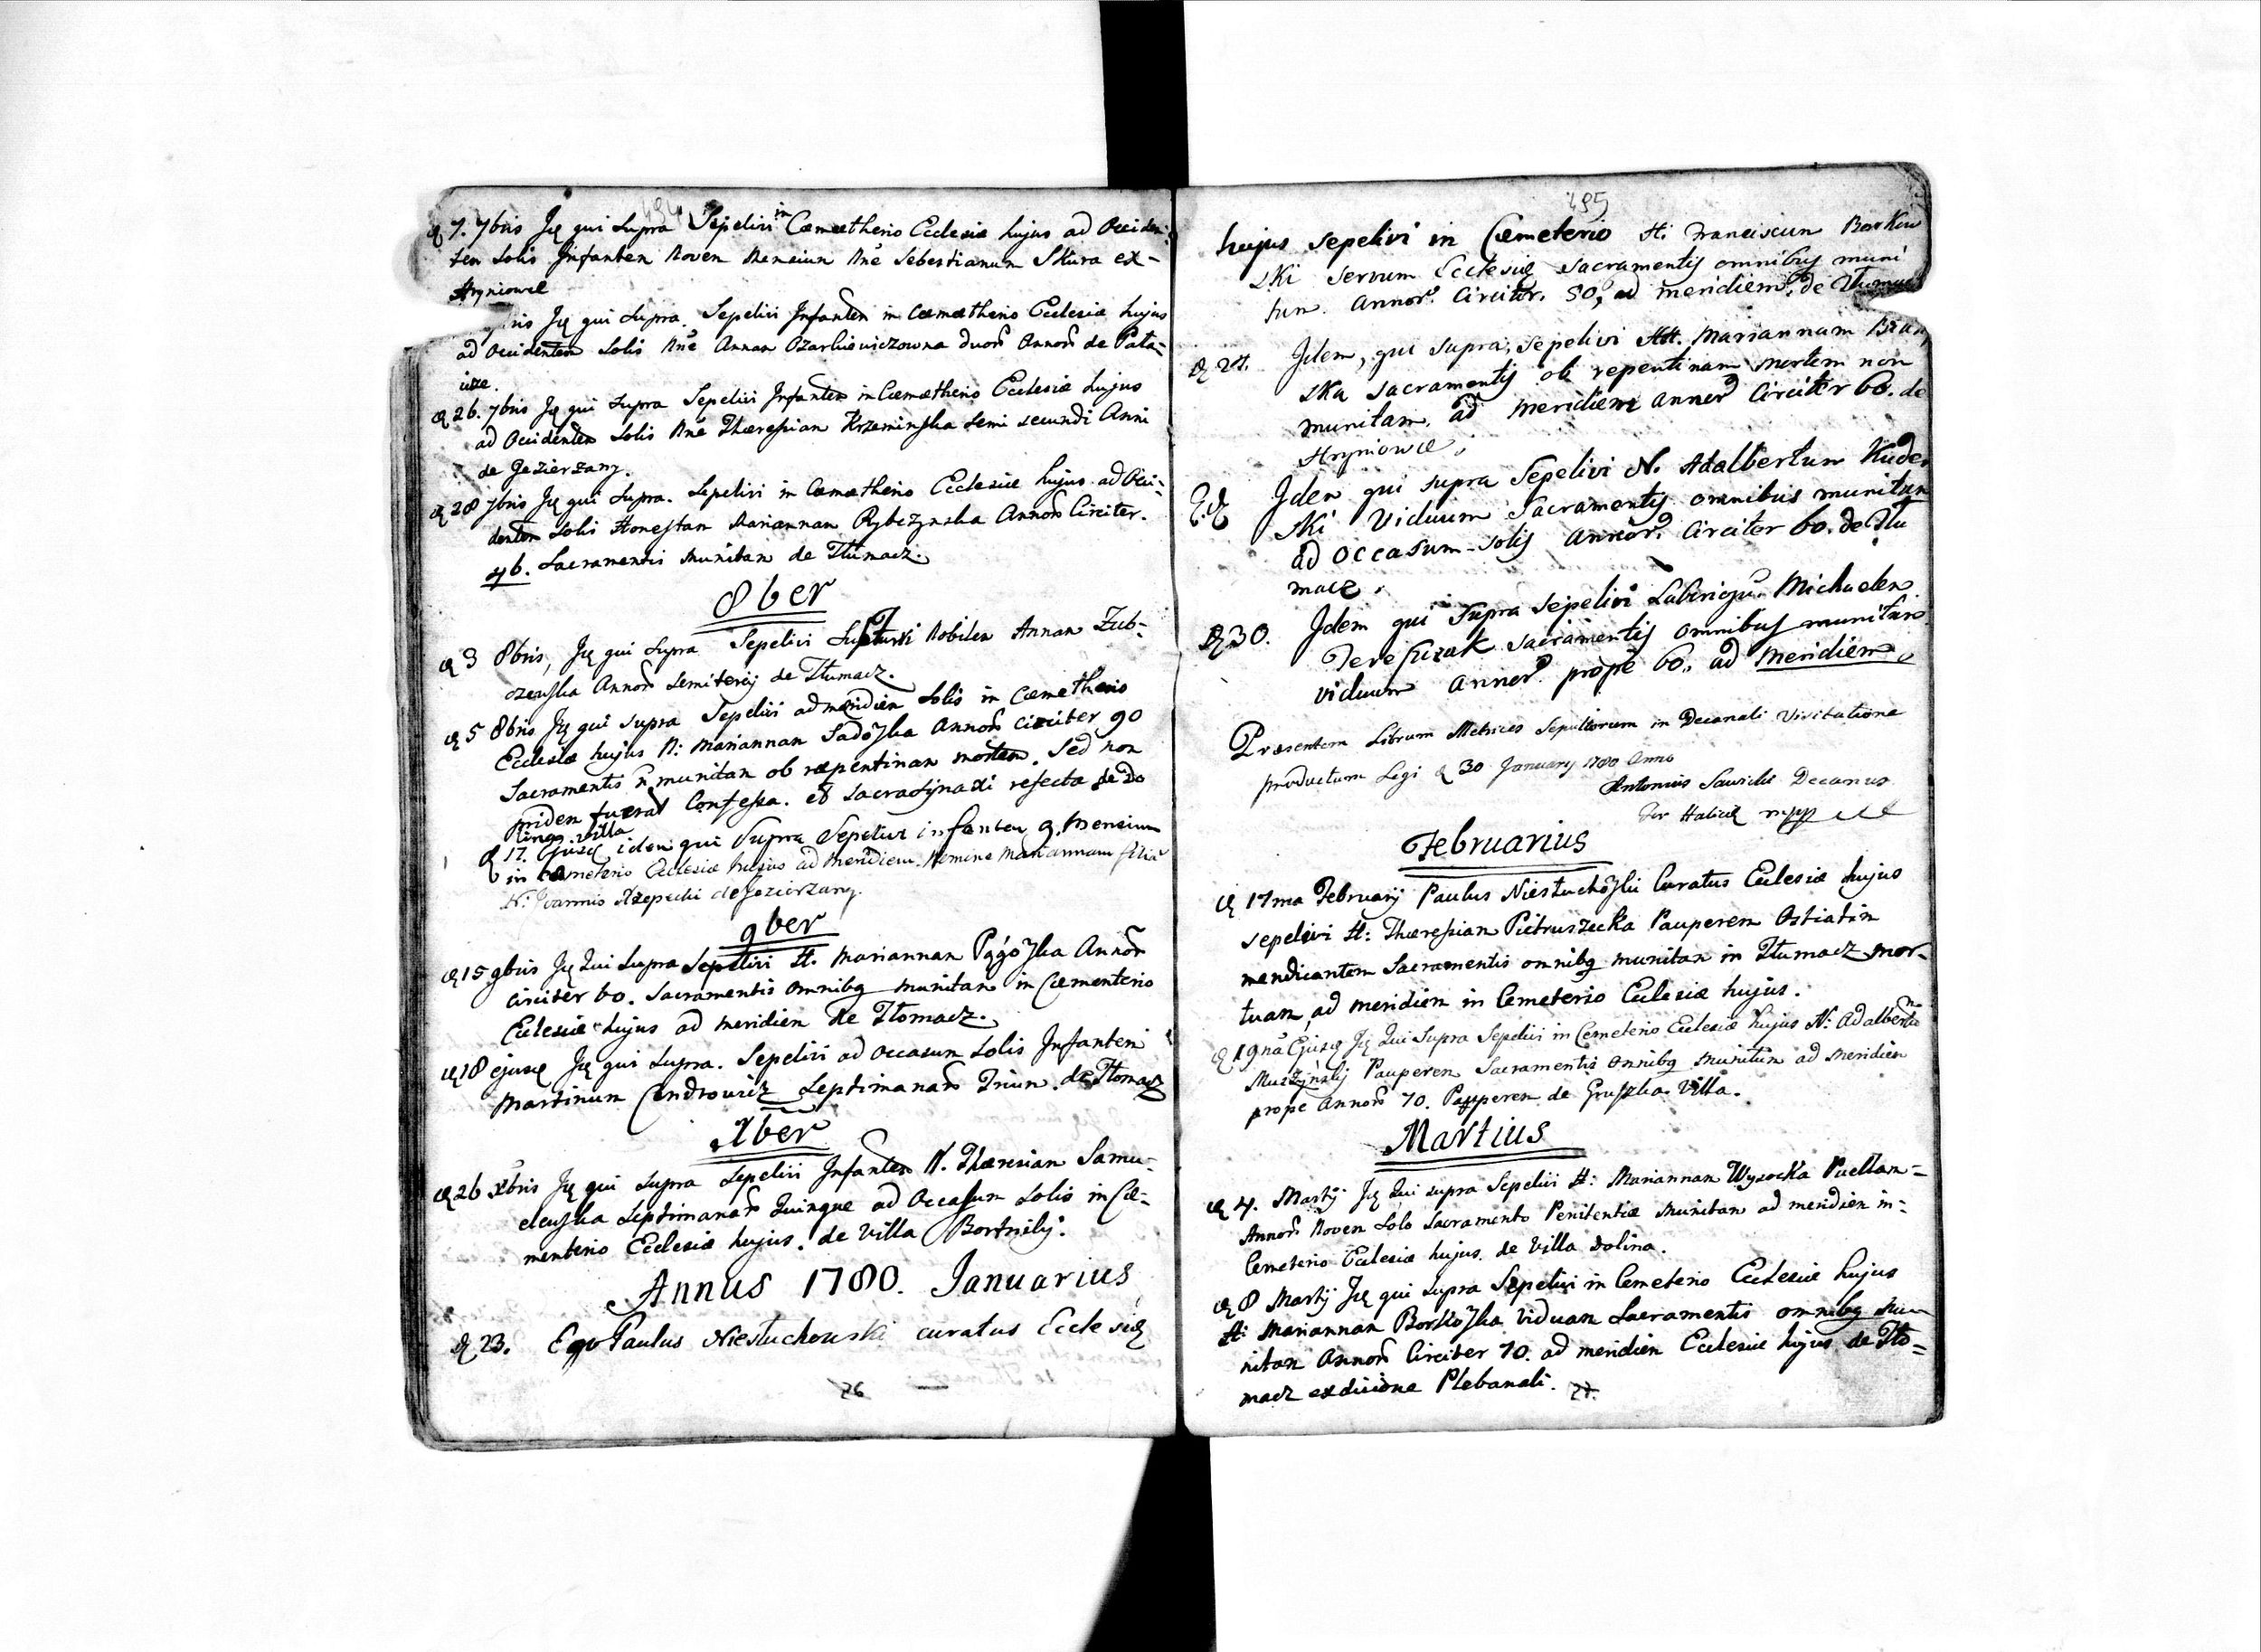 494
7. 7bris Ję qui supra Sepelivi in Cæmetherio Ecclesiæ hujus ad Occiden-
tem Solis Infantem Novem Mensium Nne Sebestianum Skura ex-
Hryniowce
Ję qui supra. Sepelivi Infantem in Cæmetherio Ecclesiæ hujus
ad Occidentem Solis Nne Annam Ozarkiewiczowna duor Annor de Pala-
icze.
26. 7bris Ję qui supra Sepelivi Infantem in Cæmetherio Ecclesiæ hujus
ad Occidentem Solis Nne Theressiam Krzeminska semi secundi Anni
de Jezierzany.
28 7bris Ję qui supra. Sepelivi in Cæmetherio Ecclesiæ hujus ad Occi-
dentem Solis Honestam Mariannam Rybczynska Annor Circiter.
46. Sacramentis Munitam de Tłumacz.
8ber
3 8bris, Ję qui supra Sepelivi Nobilem Annam Zub-
czewska Annor semiterij de Tłumacz.
5 8bris Ję qui supra Sepelivi ad meridiem Solis in Cæmetherio
Ecclesiæ hujus N: Mariannam Annor Circiter 90
Sacramentis n munitam ob repentinam mortem. Sed non
priden fuerat Confessa. et sacra synaxi refecta de Do
lina villa
17. Ejusq idem qui Supra Sepelivi infantem 9. Mensium
in Cæmeterio Ecclesiæ hujus ad Meridiem Nomine Mariannam filia
N: Joannis Rzepecki de Jezierzany.
9ber
15 9bris Ję Qui Supra Sepelivi H. Mariannam Annor
circiter 60. Sacramentis omnibq munitam in Cæmenterio
Ecclesiæ hujus ad meridiem de Tłomacz.
18 ejusq Ję qui supra. Sepelivi ad occasum Solis Infantem
Martinum Septimanar Trium de Tłomacz
Xber
26 Xbris Ję qui supra Sepelivi Infantem N. Theresiam Samu-
elewska Septimanar Quinque ad Occasum Solis in Cæ-
menterio Ecclesiæ hujus. de Villa Bortniki.
Annus 1780. Januarius
23. Ego Paulus Niestuchowski curatus Ecclesię
26
495
hujus sepelivi in Cæmeterio H. Franciscum Borkow
ski servum Ecclesię sacramentis omnibus muni
tum. Annor. Circiter. 50, ad meridiem, de
Idem, qui supra, sepelivi HH. Mariannam
ska sacramentis ob repentinam mortem non
munitam, ad meridiem annor Circiter 60. de
Hryniowce.
Idem qui supra Sepelivi N. Adalbertum
ski Viduum Sacramentis omnibus munitum
ad occasum solis annor. Circiter 60. de Tlu
macz.
30. Idem qui supra sepelivi Michaelem
sacramentis omnibus munitum
viduum annor prope 60., ad meridiem,
Præsentem Librum Metrices Sepultorum in Decanali Visitatione
productum Legi 30 January 1780 Anno
Antonius Decanus
mpp
Februarius
17ma February Paulus Curatus Ecclesiæ hujus
sepelivi H: Theressiam Pietruszecka Pauperem Ostiatim
mendicantem Sacramentis omnibq munitam in Tłumacz mor-
tuam, ad meridiem in Cemeterio Ecclesiæ hujus.
19na Ejusq Ję Qui Supra Sepelivi in Cemeterio Ecclesiæ hujus N: Adalbertum
Pauperem Sacramentis omnibq munitum ad meridiem
prope Annor 70. Pauperem de Gruszka Villa.
Martius
4. Martij Ję Qui supra Sepelivi H: Mariannam Wysocka Puellam-
Annor Novem Solo Sacramento Penitentiæ Munitam ad meridiem in-
Cemeterio Ecclesiæ hujus. de Villa Dolina.
8 Martij Ję qui supra Sepelivi in Cemeterio Ecclesiæ hujus
H: Mariannam Viduam Sacramentis omnibq mu
nitam Annor Circiter 70. ad meridiem Ecclesiæ hujus de Tło-
macz ex diviône Plebanali.
27.